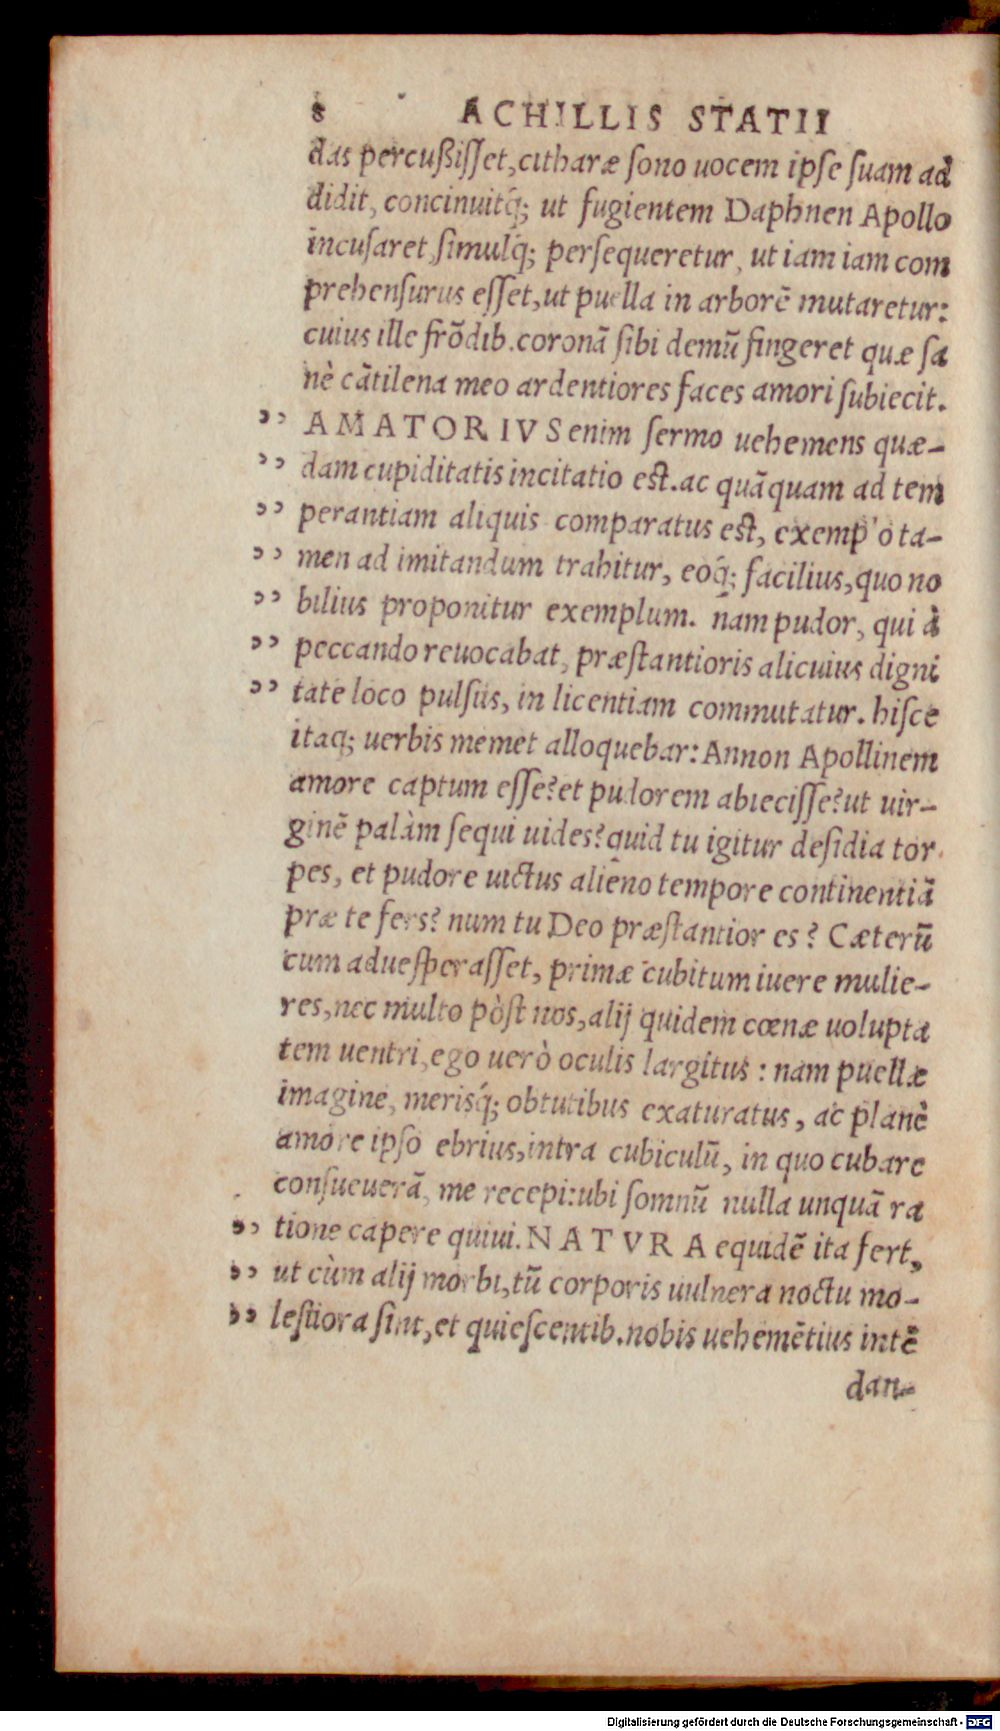 8 ACHILLIS STATII
das percußiſſet, citharæ ſono uocem ipſe ſuam ad
didit, concinuitq́;  ut fugientem Daphnen Apollo
incuſaret, ſimulq́; perſequeretur, ut iam iam com
prehenſurus eſſet, ut puella in arborē mutaretur:
cuius ille frōdib. coronā ſibi demū fingeret quæ ſa
nè cātilena meo ardentiores faces amori ſubiecit.
„ AMATORIVS enim ſermo uehemens quæ-
„ dam cupiditatis incitatio est. ac quāquam ad tem
„ perantiam aliquis comparatus est, exemp'o ta-
„ men ad imitandum trahitur, eoq́; facilius, quo no
„ bilius proponitur exemplum. nam pudor, qui à
„ peccando reuocabat, præstantioris alicuius digni
„ tate loco pulſus, in licentiam commutatur. hiſce
itaq; uerbis memet alloquebar: Annon Apollinem
amore captum eſſe? et pudorem abieciſſe? ut uir-
ginē palàm ſequi uides? quid tu igitur deſidia tor
pes, et pudore uictus alieno tempore continentiā
præ te fers? num tu Deo præſtantior es? Cæterū
cum adueſperaſſet, primæ cubitum iuere mulie-
res, nec multo pòſt nos, alij quidem cœnæ uolupta
tem uentri, ego uerò oculis largitus: nam puellæ
imagine, merisq́; obtutibus exaturatus, ac planè
amore ipſo ebrius, intra cubiculū, in quo cubare
conſueuerā, me recepi: ubi ſomnū nulla unquā ra
„ tione capere quiui. NATVRA equidē ita fert,
„ ut cùm alij morbi, tū corporis uulnera noctu mo-
„ leſtiora ſint, et quieſcentib. nobis uehemētius intē
dan-
Digitalisierung gefördert durch die Deutsche Forschungsgemeinschaft - DFG